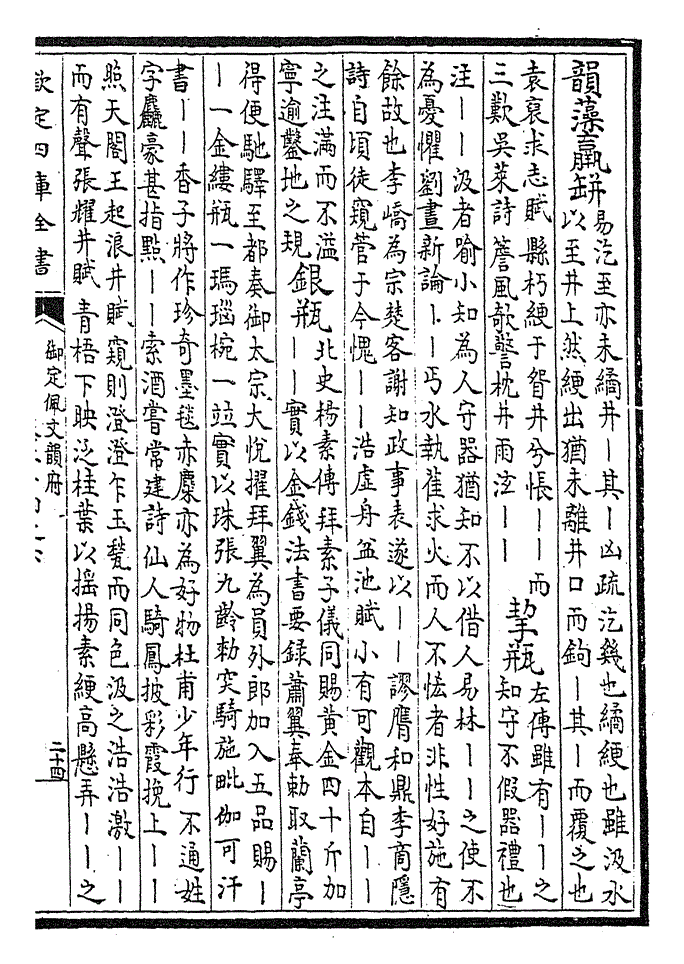 韻藻羸缾
易汔至亦未繘井丨其丨凶疏汔幾也繘綆也雖汲水
以至井上然綆出猶未離井口而鉤丨其丨而覆之也
袁裒求志賦縣朽綆于眢井兮悵丨丨而
三歎吳萊詩簷風欹警枕井雨泫丨丨
挈瓶
左傳雖有丨丨之
知守不假器禮也
注丨丨汲者喻小知為人守器猶知不以借人易林丨丨之使不
為憂懼劉晝新論丨丨丐水執萑求火而人不怯者非性好施有
餘故也李嶠為宗楚客謝知政事表遂以丨丨謬膺和鼎李商隱
詩自頃徒窺管于今愧丨丨浩虛舟盆池賦小有可觀本自丨丨
之注滿而不溢
寧逾鑿地之規
銀瓶
北史楊素傳拜素子儀同賜黃金四十斤加
丨丨實以金錢法書要錄蕭翼奉勅取蘭亭
得便馳驛至都奏御太宗大悅擢拜翼為員外郎加入五品賜丨
丨一金縷瓶一瑪瑙椀一竝實以珠張九齡勅突騎施毗伽可汗
書丨丨香子將作珍奇墨毯赤麖亦為好物杜甫少年行不通姓
字麤豪甚指點丨丨索酒嘗常建詩仙人騎鳳披彩霞挽上丨丨
照天閣王起浪井賦窺則澄澄乍玉甃而同色汲之浩浩激丨丨
而有聲張耀井賦青梧下映泛桂葉以搖揚素綆高懸弄丨丨之
欽定四庫全書
御定佩文韻府
二十四